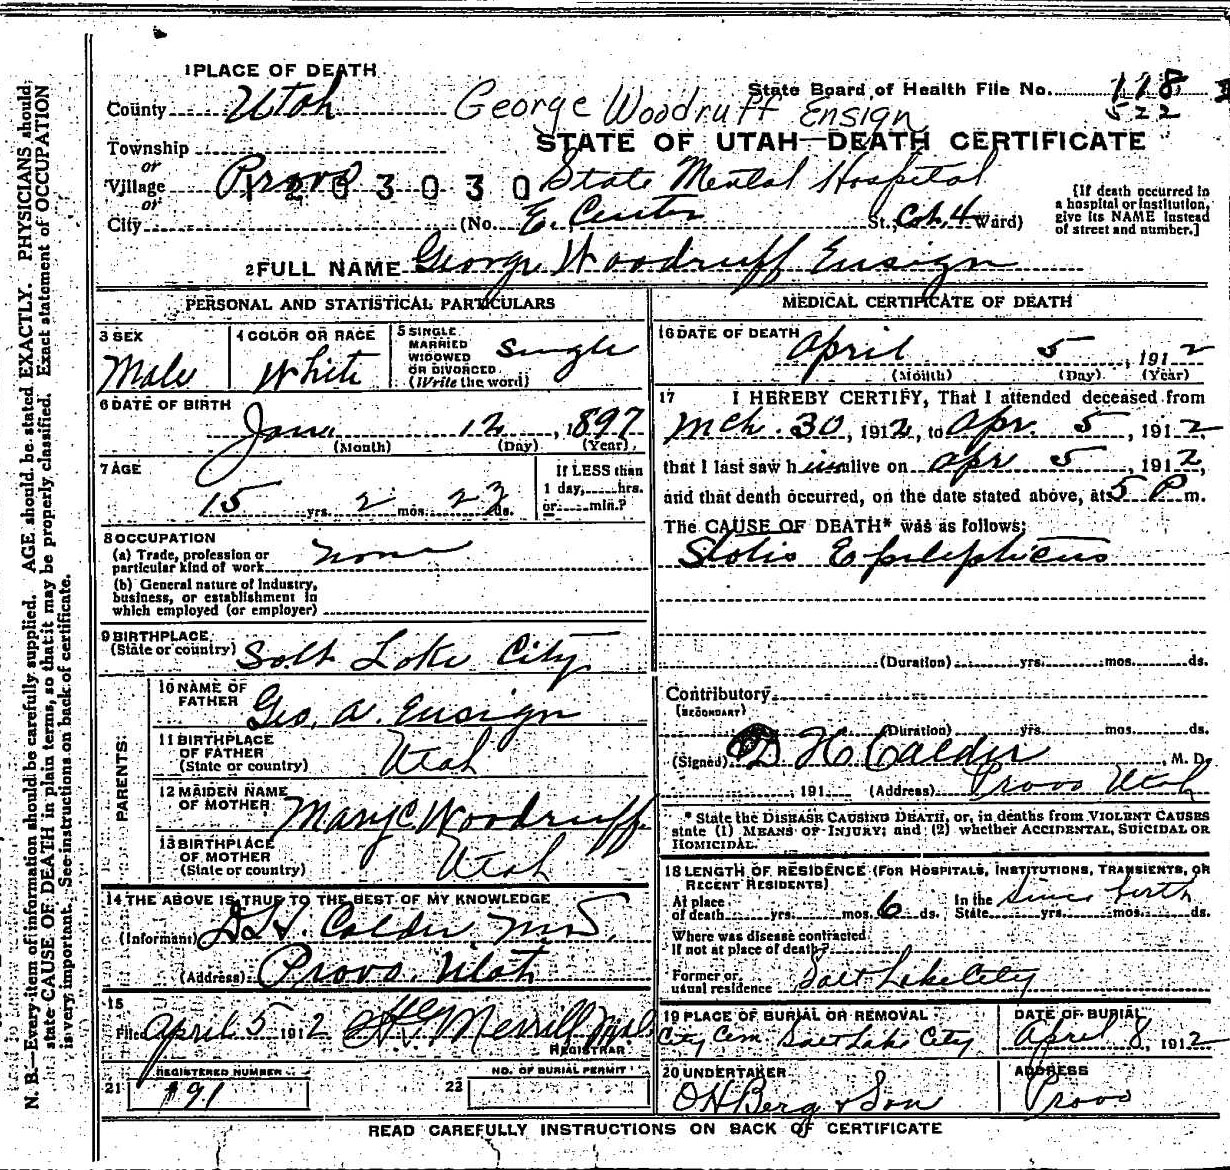 1 PLACE OF DEATH
County Utah
George Woodruff Ensign
State Board of Health File No. 118
522
STATE OF UTAH—DEATH CERTIFICATE
Township
or
Village Provo
1203030
State Mental Hospital
or
City (No. E. Center St., Ward)
[If death occurred in
a hospital or institution,
give its NAME instead
of street and number.]
2 FULL NAME George Woodruff Ensign
PERSONAL AND STATISTICAL PARTICULARS
3 SEX
Male
4 COLOR OR RACE
White
5 SINGLE
MARRIED
WIDOWED
OR DIVORCED
(Write the word)
Single
6 DATE OF BIRTH
Jany 12, 1897
(Month) (Day) (Year)
7 AGE
15 yrs. 2 mos. 23 ds.
If LESS than
1 day, hrs.
or min.?
8 OCCUPATION
(a) Trade, profession or
particular kind of work none
(b) General nature of Industry,
business, or establishment in
which employed (or employer)
9 BIRTHPLACE
(State or country) Salt Lake City
PARENTS
10 NAME OF
FATHER Geo. A. Ensign
11 BIRTHPLACE
OF FATHER
(State or country) Utah
12 MAIDEN NAME
OF MOTHER Mary C. Woodruff
13 BIRTHPLACE
OF MOTHER
(State or country) Utah
14 THE ABOVE IS TRUE TO THE BEST OF MY KNOWLEDGE
(Informant) D. H. Calder M.D.
(Address) Provo. Utah
15
Filed April 5 1912 Merrill
REGISTRAR
REGISTERED NUMBER
21 191
NO. OF BURIAL PERMIT
22
MEDICAL CERTIFICATE OF DEATH
16 DATE OF DEATH
April 5, 1912
(Month) (Day) (Year)
17 I HEREBY CERTIFY, That I attended deceased from
Mch. 30, 1912, to Apr. 5, 1912
that I last saw him alive on Apr 5, 1912,
and that death occurred, on the date stated above, at 5 P m.
The CAUSE OF DEATH* was as follows:
Status Epilepticus
(Duration) yrs. mos. ds.
Contributory
(SECONDARY)
(Duration) yrs. mos. ds.
(Signed) D H Calder, M. D.
191 (Address) Provo Utah
* State the DISEASE CAUSING DEATH, or, in deaths from VIOLENT CAUSES
state (1) MEANS OF INJURY; and (2) whether ACCIDENTAL, SUICIDAL OR
HOMICIDAL.
18 LENGTH OF RESIDENCE (FOR HOSPITALS, INSTITUTIONS, TRANSIENTS, OR
RECENT RESIDENTS)
At place
of death yrs. mos. 6 ds.
In the
State Since birth yrs. mos. ds.
Where was disease contracted
if not at place of death?
Former or
usual residence Salt Lake City
19 PLACE OF BURIAL OR REMOVAL
City Cem. Salt Lake City
DATE OF BURIAL
April 8, 1912
20 UNDERTAKER
O H Berg & Son
ADDRESS
Provo
READ CAREFULLY INSTRUCTIONS ON BACK OF CERTIFICATE
N. B.—Every item of information should be carefully supplied. AGE should be stated EXACTLY. PHYSICIANS should
state CAUSE OF DEATH in plain terms, so that it may be properly classified. Exact statement of OCCUPATION
is very important. See instructions on back of certificate.